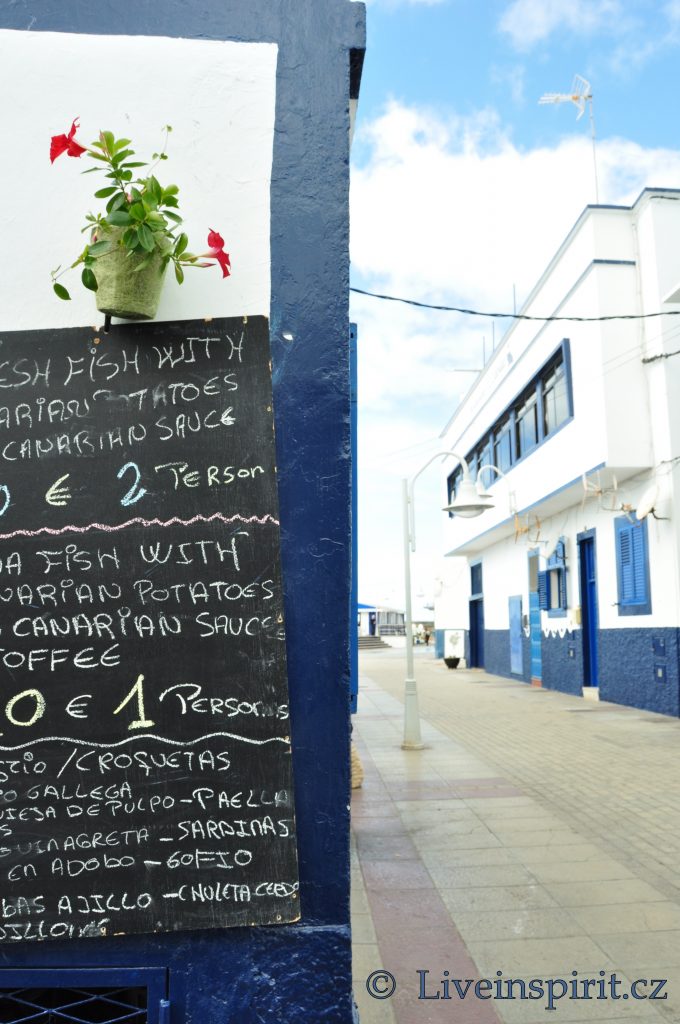 ESH FISH WITH
ARIAN TATOES
CANARIAN SAUCE
€ 2 PERSON
FISH WITH
ARIAN POTATOES
CANARIAN SAUCE
TOFFEE
0 € 1 PERSON
/CROQUETAS
GALLEGA
DE PULPO-PAELLA
VINAGRETA-SARDINAS
EN ADOBO-GOFIO
BAS AJILLO-CHULETA CERDO
© Liveinspirit.cz